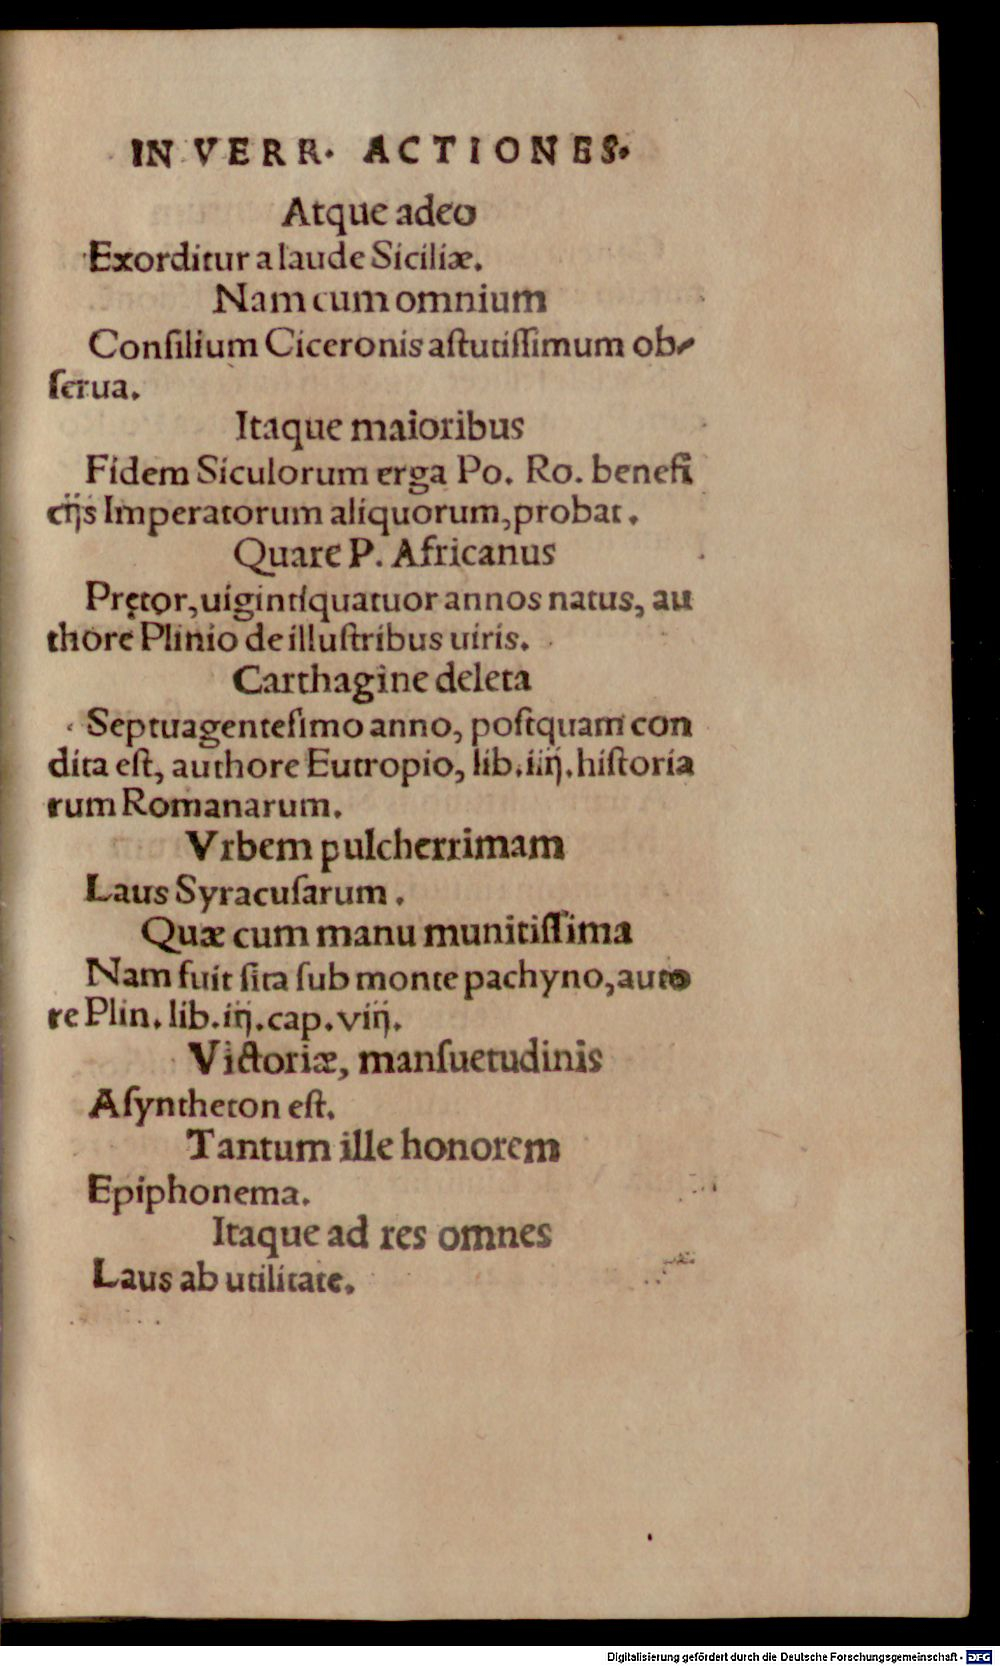 IN VERR. ACTIONES.
Atque adeo
Exorditur a laude Siciliæ.
Nam cum omnium
Conſilium Ciceronis aſtutiſſimum ob-
ſerua.
Itaque maioribus
Fidem Siculorum erga Po. Ro. benefi
cijs Imperatorum aliquorum, probat.
Quare P. Africanus
Prętor, uigintiquatuor annos natus, au
thore Plinio de illuſtribus uiris.
Carthagine deleta
Septuagenteſimo anno, poſtquam con
dita eſt, authore Eutropio, lib. iiij. hiſtoria
rum Romanarum.
Vrbem pulcherrimam
Laus Syracuſarum.
Quæ cum manu munitiſſima
Nam fuit ſita ſub monte pachyno, auto
re Plin. lib. iij. cap. viij.
Victoriæ, manſuetudinis
Aſyntheton eſt.
Tantum ille honorem
Epiphonema.
Itaque ad res omnes
Laus ab utilitate.
Digitalisierung gefördert durch die Deutsche Forschungsgemeinschaft - DFG